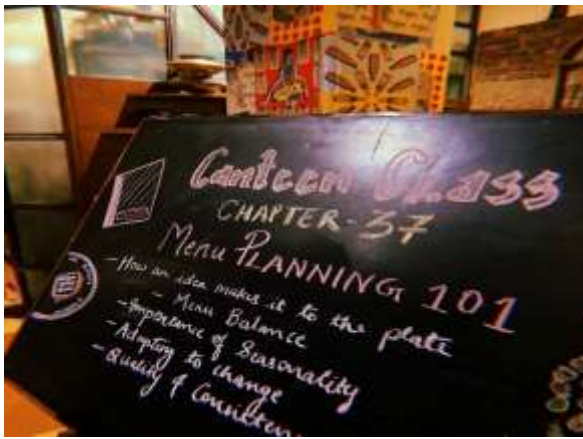 Canteen Class
CHAPTER-37
Menu PLANNING 101
- How an idea makes it to the plate
- Menu Balance
- Importance of Seasonality
- Adapting to change
- Quality &